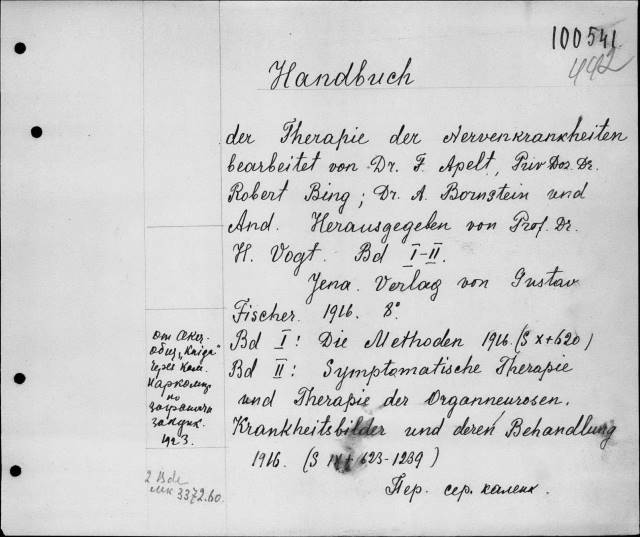 100541
442
Handbuch
der Therapie der Nervenkrankheiten
bearbeitet von Dr. F. Apelt, Priv Doz. Dr.
Robert Bing; Dr. A. Bornstein und
And. Herausgegeben von Prof. Dr.
H. Vogt. Bd I-II.
Jena. Verlag von Gustav
Fischer. 1916. 8°
Bd I: Die Methoden 1916. (S X+620)
Bd II: Symptomatische Therapie
und Therapie der Organneurosen.
Krankheitsbilder und deren Behandlung
1916. (S IX+ 623-1239)
Пер. сер. каленк.
от Акц.
общ. „Книга"
через Ком.
Наркомпр
по
заграничн
закупк.
1923.
2 Bde
мк 3372.60.